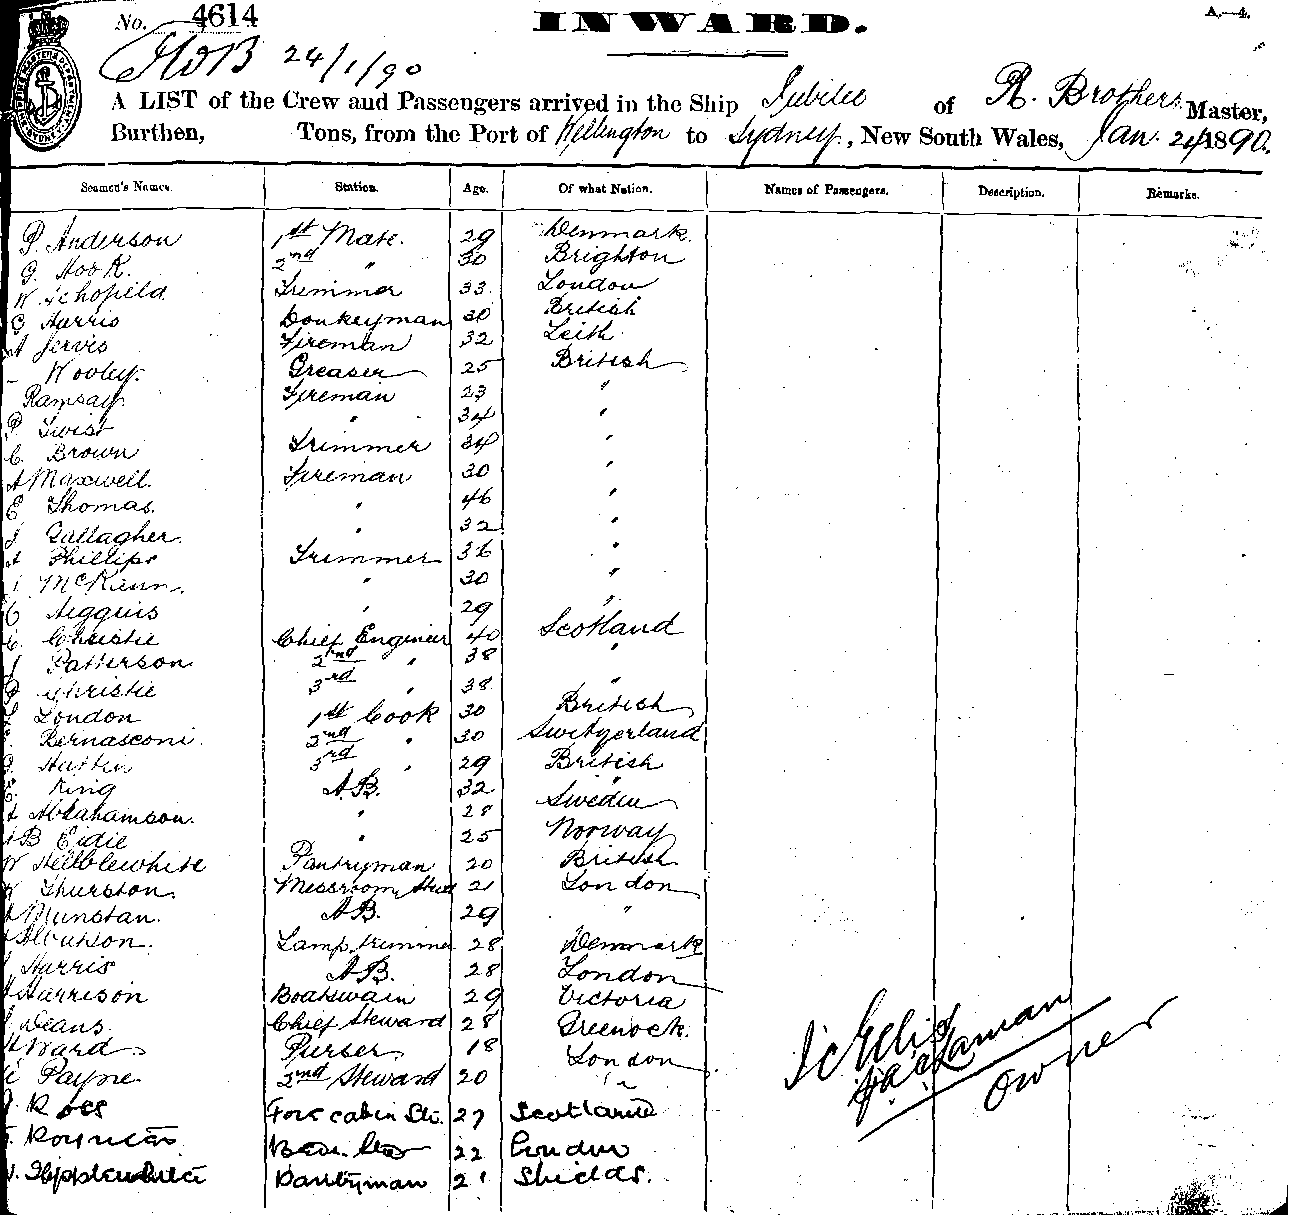 No. 4614
INWARD.
A.—4.
24/1/90
A LIST of the Crew and Passengers arrived in the Ship Jubilee of A. Brothers Master,
Burthen, Tons, from the Port of Wellington to Sydney, New South Wales, Jan. 24 1890.
Seamen's Names. Station. Age. Of what Nation. Names of Passengers. Description. Remarks.
P. Anderson 1st Mate. 29 Denmark.
G. Hook. 2nd " 30 Brighton
W. Schofield Trimmer 33 London
G Harris Donkeyman 30 British
Jervis Fireman 32 Leith
Wooley. Greaser 25 British
Ramsay. Fireman 23 "
P. Twist " 34 "
C. Brown Trimmer 34 "
A Maxwell. Fireman 30 "
E Thomas. " 46 "
J Gallagher. " 32 "
A Phillips Trimmer 36 "
" 30 "
C " 29 "
Christie Chief Engineer 40 Scotland
J Patterson 2nd " 38 "
D Christie 3rd " 38 "
London 1st Cook 30 British
Bernasconi. 2nd " 30 Switzerland
3rd " 29 British
E. King A.B. 32 "
A Abrahamson. " 28 Sweden
B Eidie " 25 Norway
W Hebblewhite Pantryman 20 British
W Thurston. Messroom Stwd 21 London
Munstan. A.B. 29 "
Lamp trimmer 28 Denmark
Harris A.B. 28 London
Harrison Boatswain 29 Victoria
Deans. Chief Steward 28 Greenock.
Ward Purser 18 London
Payne 2nd Steward 20 "
Ross Fore cabin St. 27 Scotland
22 London
Pantryman 21 Shields.
Owner